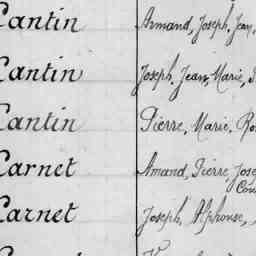 Cantin Armand, Joseph, Jean,
Cantin Joseph, Jean, Marie,
Cantin Pierre, Marie, Ro
Carnet Amand, Pierre, Jose
Cou
Carnet Joseph, Alphonse,